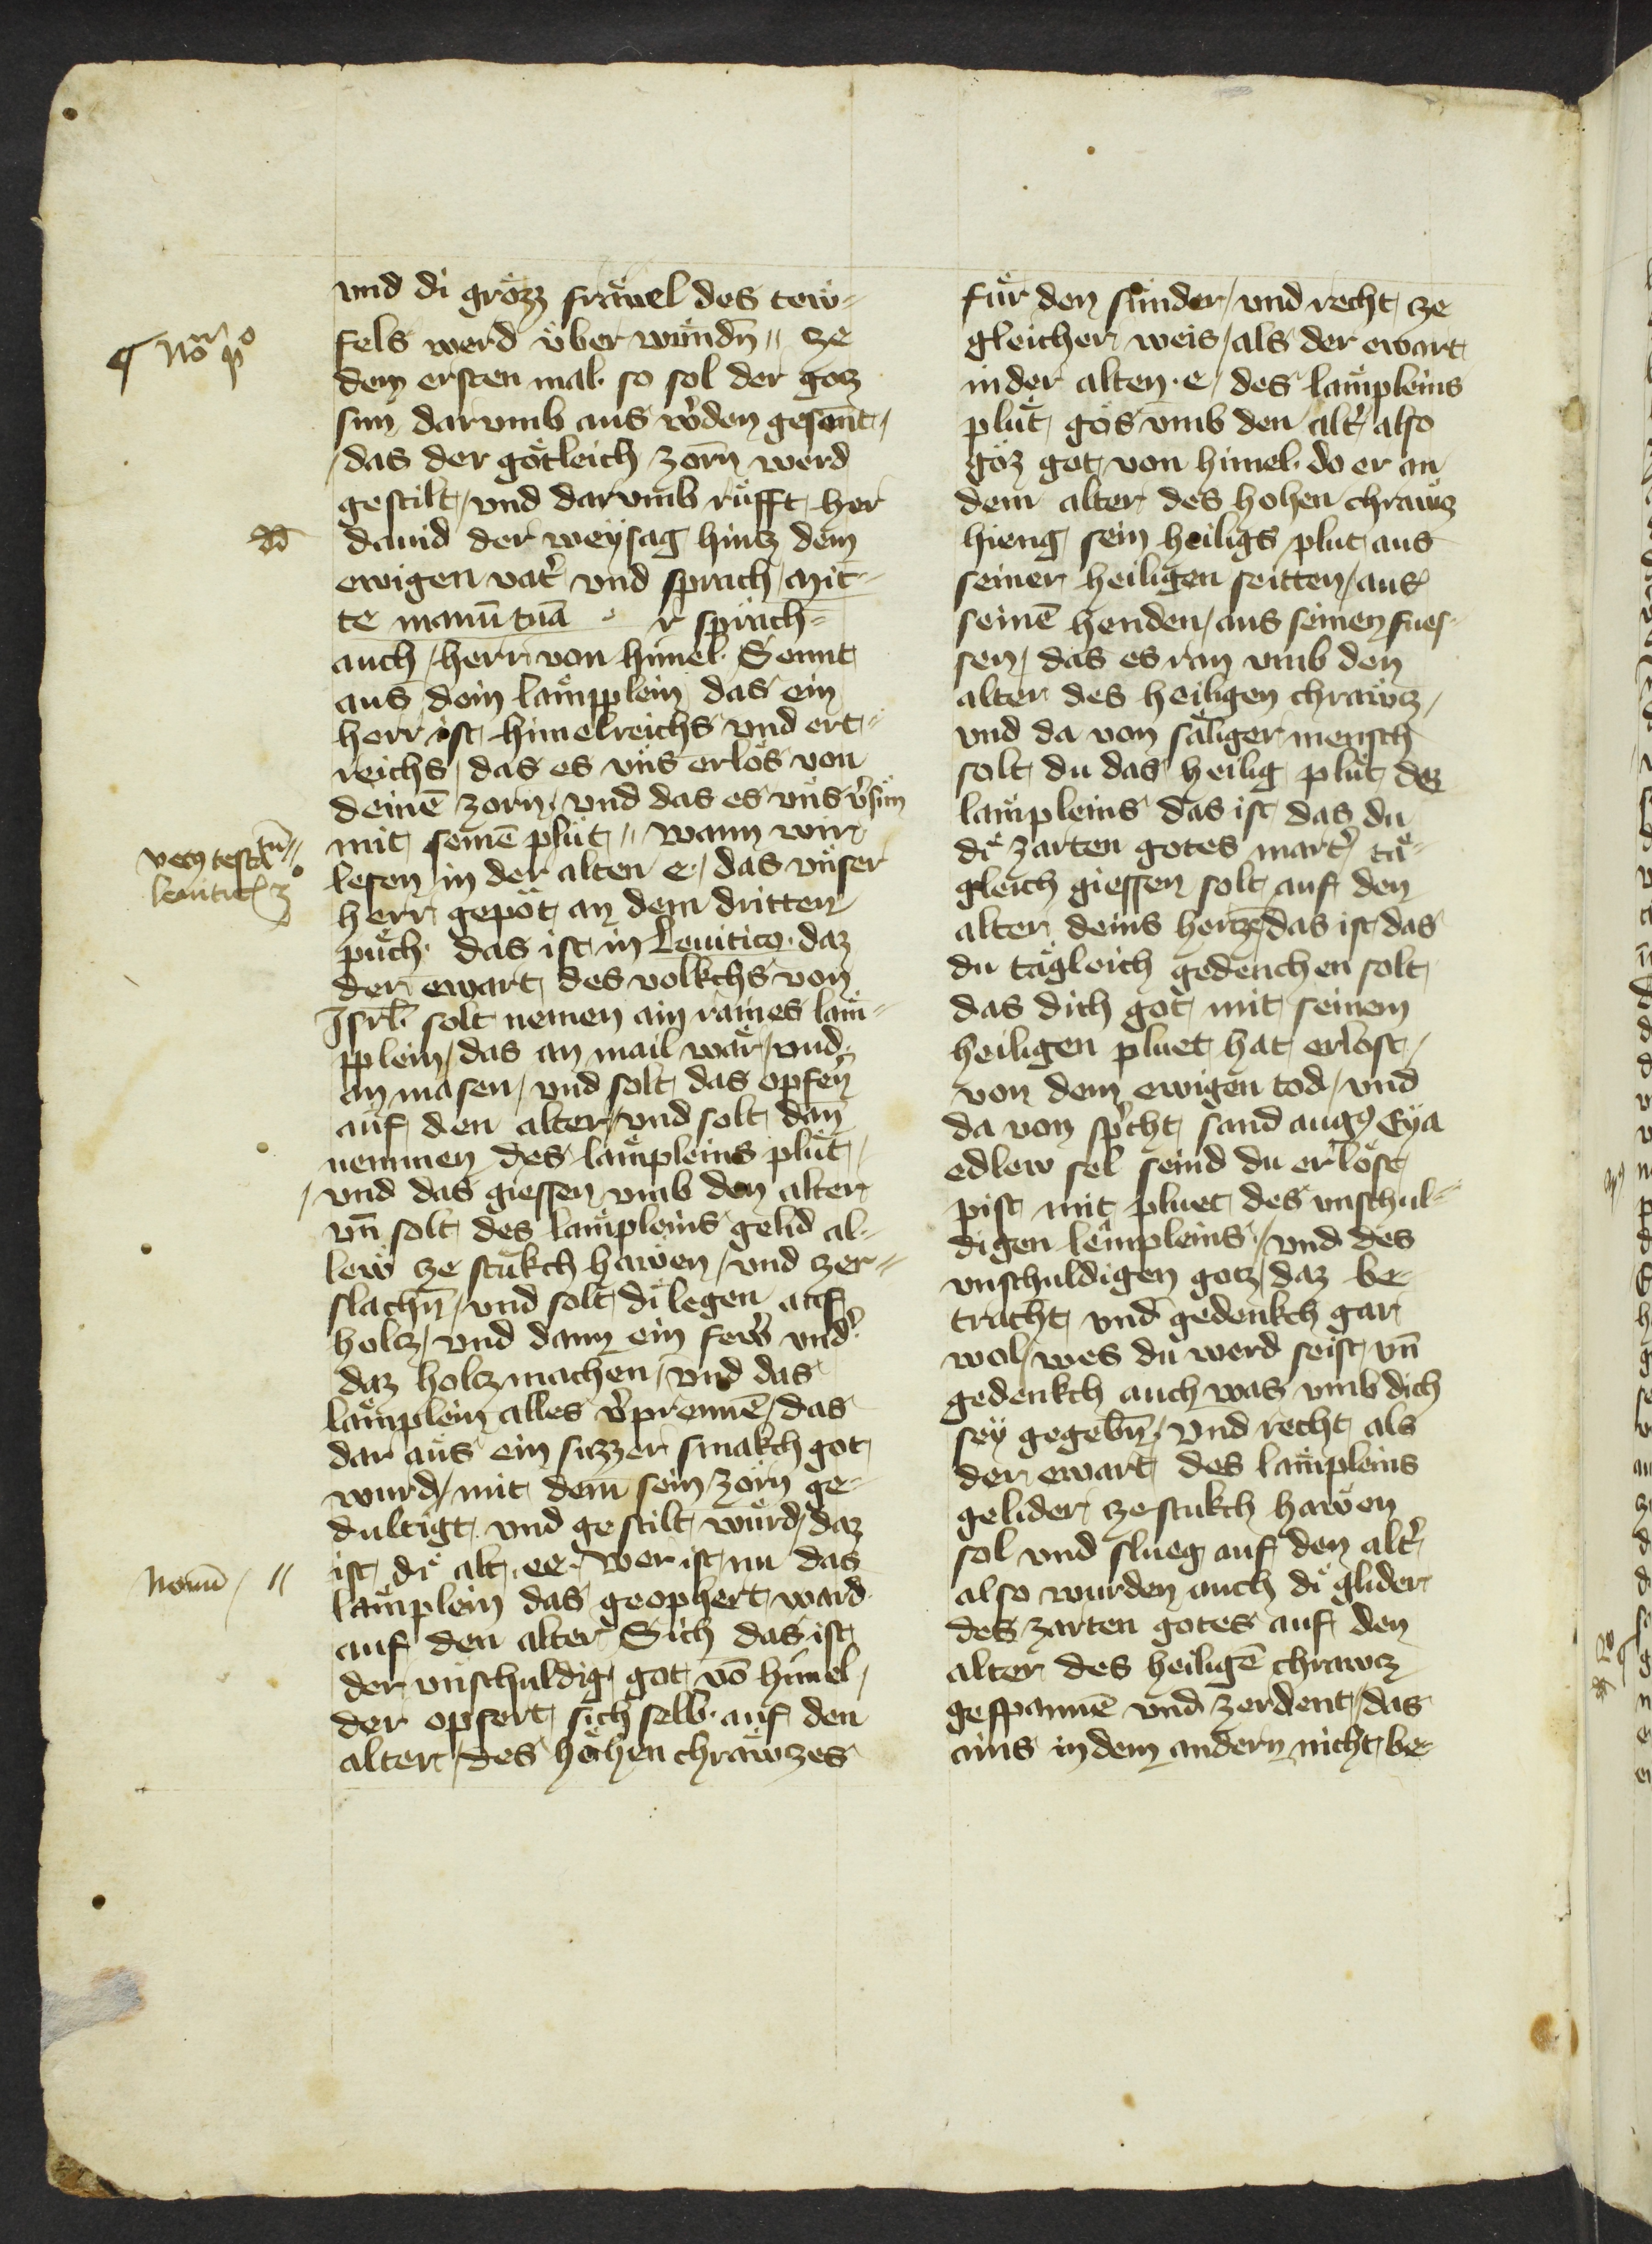 vnd di grözz fräuel des tew-
fels werd vͤber wundn̄ // ze
dem ersten mal. so sol der gotz
sun dar vmb aus w̕den gesant /
/ das der götleich zorn werd
gestilt / vnd dar vmb rüfft her
dauid der weysag hintz dem
ewigen vat̕ vnd sprach / Mit-
te manū tuā r sprach=
auch / herr von himel. Sennt
aus dein lämpplein das ein
herr ist himelreichs vnd ert-
reichs / das es vns erlös von
deinē zorn / vnd das es vns v̕sün
mit seinē plüt // wann wir
lesen in der alten e / das vnser
herr gepöt an dem dritten
püch. das ist in Leuitico. daz
der ewart des volkchs von
Jsrl̄. solt nemen ain raines läm-
pplein / das an mail wär / vnd
an masen / vnd solt das opfern̄
auf den alter / vnd solt dan̄
nemmen des lämpleins plüt /
/ vnd das giessen vmb den alter
vn̄ solt des lämpleins gelid al-
lew ze stükch hawen / vnd zer-
slachn̄ / vnd solt di legen auf
holtz / vnd dann ein few̕ vnd̕
daz holtz machen / vnd das
lämplein alles v̕prennē / das
dar aus ein suzzer smakch got
wurd / mit dem sein zorn ge-
dultigt vnd gestilt würd / daz
ist di alt ee. wer ist nu das
lämplein das geophert ward
auf den alter Sich das ist
der vnschuldig got vō himel /
der opfert sich selb. auf den
alter / des höhen chräwtzes
¶ No p̊
dd
vet9 testm̄
leuitic̄ 3̊
Nouū / //
für den sünder / vnd recht ze
gleicher weis / als der ewart
in der alten .e / des lämpleins
plüt gös vmb den alt̕ also
göz got von himel. do er an
dem alter des hohen chräwtz
hieng sein heiligs plut aus
seiner heiligen seitten / aus
seinē henden / aus seinen fues-
sen / das es ran vmb den
alter des heiligen chräwtz /
vnd da von säliger mensch
solt du das heilig plüt dez
lämpleins das ist das du
di zarten gotes mart̕ tä-
gleich giessen solt auf den
alter deins hertzē / das ist das
du tägleich gedenchen solt
das dich got mit seinem
heiligen pluet hat erlost /
von dem ewigen tod / vnd
da von sp̕cht sand aug9 Eya
edlew sel seind du erlöst
pist mit pluet des vnschul-
digen lempleins / vnd des
vnschuldigen gotz / daz be-
tracht vnd gedenkch gar
wol / wes du werd seist vn̄
gedenkch auch was vmb dich
sey gegebn̄. vnd recht als
der ewart des lämpleins
gelider ze stukch hawen
sol vnd slueg auf den alt̕
also wurden auch di glider
des zarten gotes auf den
alter des heiligē chrawtz
gespannē vnd zerdent / das
ains in dem andern nicht be-